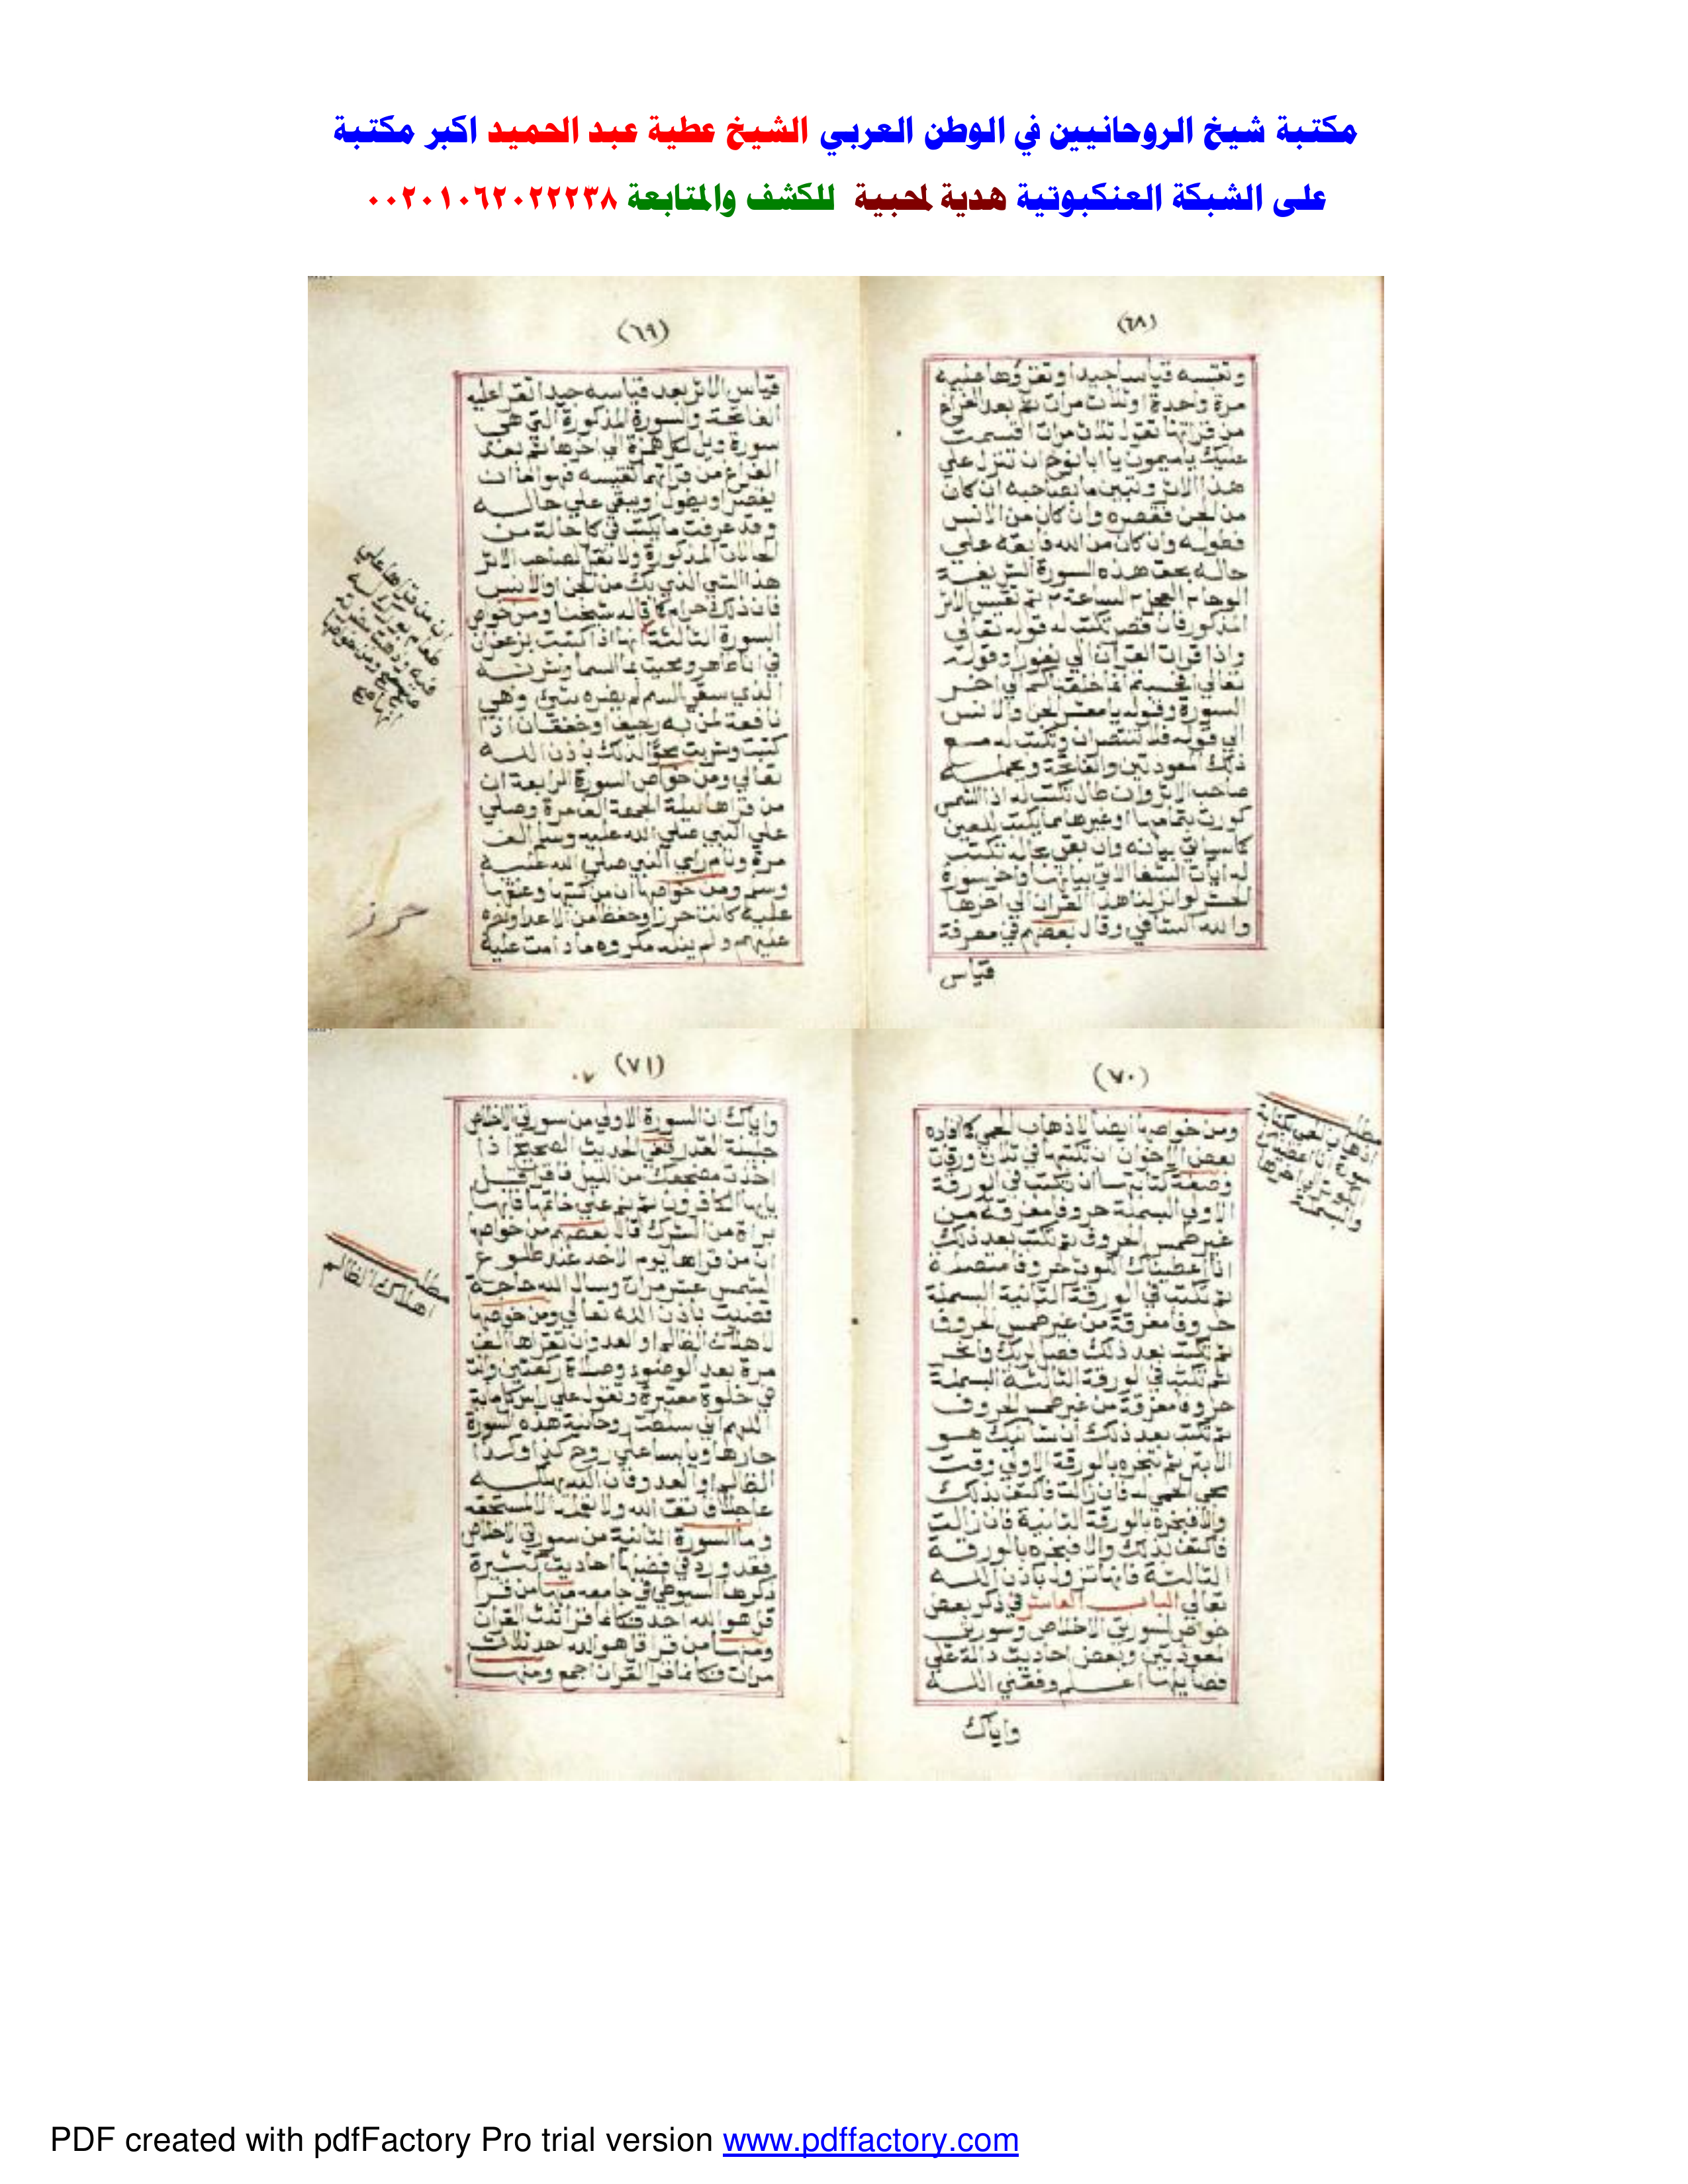 مكتبة شيخ الروحانيين في الوطن العربي الشيخ عطية عبد الحميد اكبر مكتبة
على الشبكة العنكبوتية هدية لمحبية للكشف والمتابعة ٠٠٢٠١٠٦٢٠٢٢٢٣٨
(٦٨)
وتقيسه قياسا جيدا وتقرؤها عليه
مرة واحدة او ثلاث مرات ثم بعد الفراغ
من قراتها تقول ثلاث مرات اقسمت
عليك يا ميمون يا ابا نوخ ان تنزل علي
هذا الاثر وتبين ما بصاحبه ان كان
من الجن فقصره وان كان من الانس
فطوله وان كان من الله فابقه علي
حاله بحق هذه السورة الشريفة
الوحا العجل الساعة ثم تقيس الاثر
المذكور فان قصر تكتب له قوله تعالي
واذا قرات القرآن الي نفورا وقوله
تعالي افحسبتم انما خلقناكم الي اخر
السورة وقوله يا معشر الجن والانس
الي قوله فلا تنتصران وتكتب له مع
ذلك المعوذتين والفاتحة ويحمله
صاحب الاثر وان طال تكتب له اذا الشمس
كورت بتمامها او غيرها مما يكتب للعين
كما سياتي بيانه وان بقي بحاله تكتب
له ايات الشفا الاتي بيانها واخر سورة
الحشر لو انزلنا هذا القران الي اخرها
والله الشافي وقال بعضهم في معرفة
قياس
(٦٩)
قياس الاثر بعد قياسه جيدا تقرا عليه
الفاتحة والسورة المذكورة التي هي
سورة ويل لكل همزة الي اخرها ثم بعد
الفراغ من قراتها تقيسه فهو اما ان
يقصر او يطول او يبقي علي حاله
وقد عرفت ما يكتب في كل حالة من
الحالات المذكورة ولا تقل لصاحب الاثر
هذا الشي الذي بك من الجن او الانس
فان ذلك حرام كما قاله شيخنا ومن خواص
السورة الثالثة انها اذا كتبت بزعفران
في انا طاهر ومحيت بما السما وشربه
الذي سقي السم لم يضره شي وهي
نافعة لمن به رجيف او خفقان اذا
كتبت وشربت لذلك باذن الله
تعالي ومن خواص السورة الرابعة ان
من قراها ليلة الجمعة العامرة وصلي
علي النبي صلي الله عليه وسلم الف
مرة ونام راي النبي صلي الله عليه
وسلم ومن خواصها ان من كتبها وعلقها
عليه كانت حرزا وحفظا من الاعدا ونصره
عليهم ولم ينله مكروه ما دامت عليه
ان من قراها علي
طعام
حرز
(٧٠)
ومن خواصها ايضا لاذهاب الحمي كما افاده
بعض الاخوان ان تكتبها في ثلاث ورقات
وصفة كتابتها ان تكتب في الورقة
الاولي البسملة حروفا مفرقة من
غير طمس الحروف ثم تكتب بعد ذلك
انا اعطيناك الكوثر حروفا متصلة
ثم تكتب في الورقة الثانية البسملة
حروفا مفرقة من غير طمس الحروف
ثم تكتب بعد ذلك فصل لربك وانحر
ثم تكتب في الورقة الثالثة البسملة
حروفا مفرقة من غير طمس الحروف
ثم تكتب بعد ذلك ان شانيك هو
الابتر ثم تبخره بالورقة الاولي وقت
مجي الحمي له فان زالت فاكتف بذلك
والا فبخره بالورقة الثانية فان زالت
فاكتف بذلك والا فبخره بالورقة
الثالثة فانها تزول باذن الله
تعالي الباب العاشر في ذكر بعض
خواص لسورتي الاخلاص وسورتي
المعوذتين وبعض احاديث دالة علي
فضايلها اعلم وفقني الله
واياك
اذهاب الحمي
انا اعطيناك
(٧١)
واياك ان السورة الاولي من سورتي الاخلاص
جليلة القدر ففي الحديث الصحيح اذا
اخذت مضجعك من الليل فاقرا قل
يايها الكافرون ثم نم علي خاتمتها فانها
براة من الشرك قال بعضهم من خواصها
ان من قراها يوم الاحد عند طلوع
الشمس عشر مرات وسال الله حاجة
قضيت باذن الله تعالي ومن خواصها
لاهلاك الظالم او العدو ان تقراها الف
مرة بعد الوضوء وصلاة ركعتين وانت
في خلوة معتبرة وتقول علي راس كل ماية
اللهم اني سلطت روحانية هذه السورة
علي روح كذا وكذا
الظالم او العدو فان الله يهلكه
عاجلا فاتق الله ولا تفعله الا لمستحقه
وما السورة الثانية من سورتي الاخلاص
فقد ورد في فضلها احاديث كثيرة
ذكرها السيوطي في جامعه منها من قرا
قل هو الله احد فكانما قرا ثلث القران
ومنها من قرا قل هو الله احد ثلاث
مرات فكانما قرا القران اجمع ومنها
مطلب
اهلاك الظالم
PDF created with pdfFactory Pro trial version www.pdffactory.com